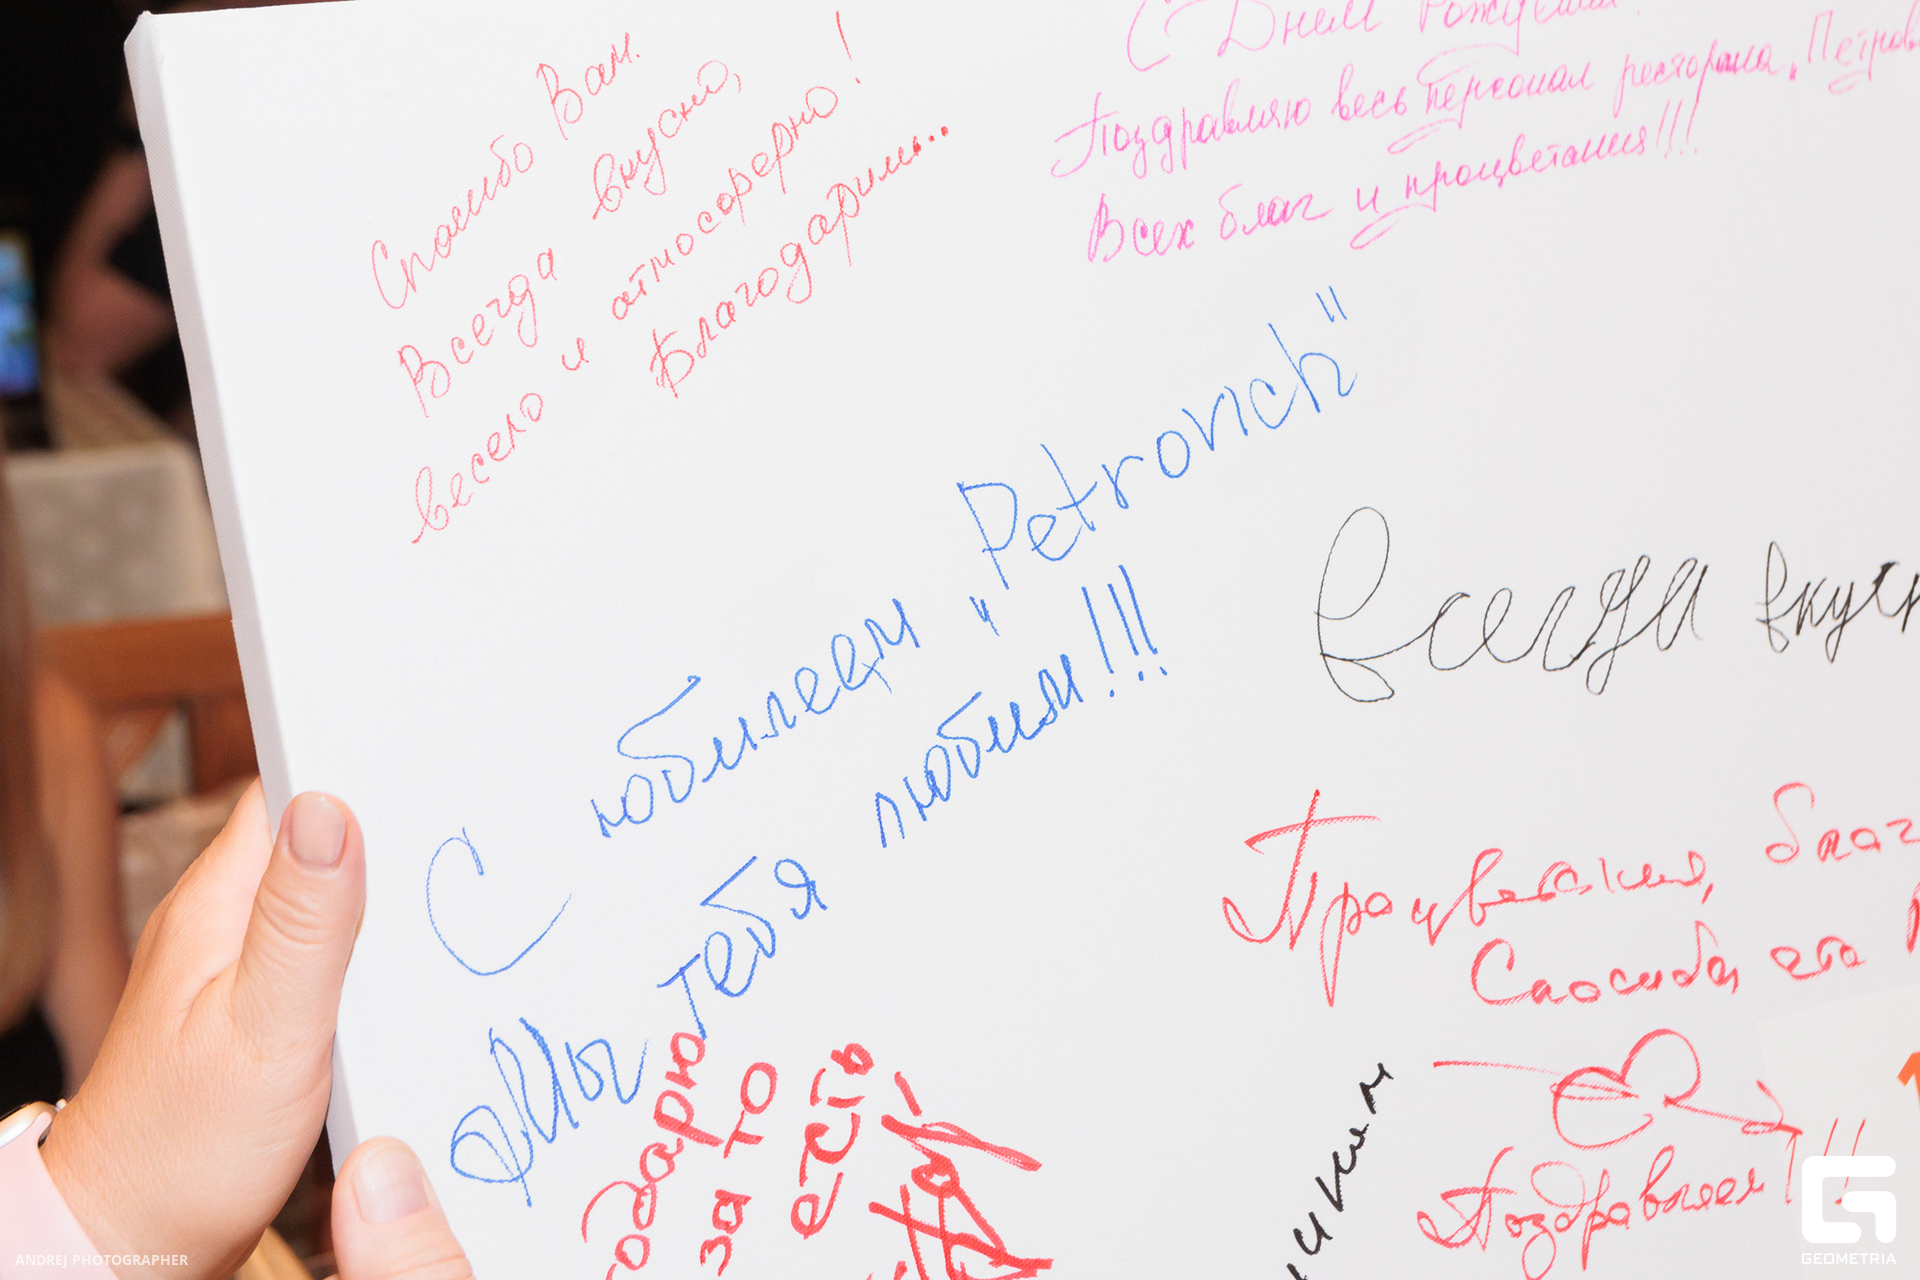 Спасибо Вам.
Всегда вкусно,
весело и атмосферно!
Благодарим...
С Днем Рождения!
Поздравляю весь персонал ресторана „Петров
Всех благ и процветания!!!
С юбилеем „Petrovich"
Мы тебя любим!!!
всегда вкусн
Процветания, благ
Спасибо, что
Поздравляем!!!
одарю
за то
есть
ANDREJ PHOTOGRAPHER
GEOMETRIA